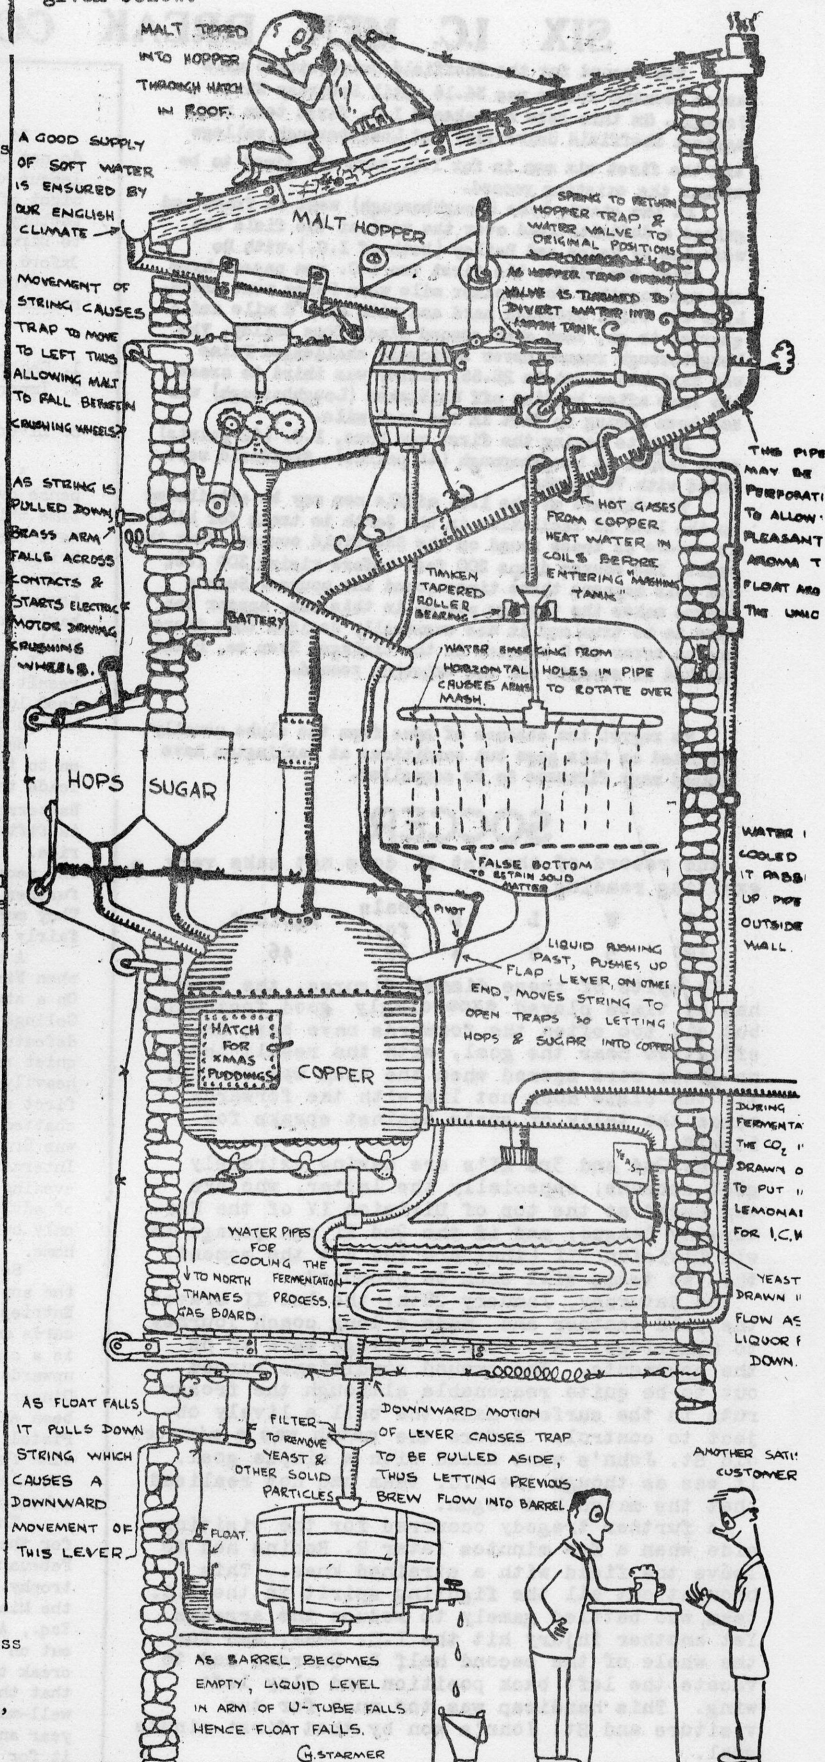 MALT TIPPED
INTO HOPPER
THROUGH HATCH
IN ROOF.
A GOOD SUPPLY
OF SOFT WATER
IS ENSURED BY
OUR ENGLISH
CLIMATE
MALT HOPPER
SPRING TO RETURN
HOPPER TRAP &
WATER VALVE TO
ORIGINAL POSITIONS
AS HOPPER TRAP OPENS
VALVE IS TURNED TO
DIVERT WATER INTO
TANK.
MOVEMENT OF
STRING CAUSES
TRAP TO MOVE
TO LEFT THUS
ALLOWING MALT
TO FALL BETWEEN
CRUSHING WHEELS
AS STRING IS
PULLED DOWN,
BRASS ARM
FALLS ACROSS
CONTACTS &
STARTS ELECTRIC
MOTOR DRIVING
CRUSHING
WHEELS.
BATTERY
HOT GASES
FROM COPPER
HEAT WATER IN
COILS BEFORE
ENTERING "MASHING
TANK"
THIS PIPE
MAY BE
PERFORATI
TO ALLOW
PLEASANT
AROMA T
FLOAT ARO
THE UNIO
TIMKEN
TAPERED
ROLLER
BEARING
WATER EMERGING FROM
HORIZONTAL HOLES IN PIPE
CAUSES ARMS TO ROTATE OVER
MASH.
HOPS
SUGAR
FALSE BOTTOM
TO RETAIN SOLID
MATTER
PIVOT
FLAP
LIQUID RUSHING
PAST, PUSHES UP
LEVER, ON OTHER
END, MOVES STRING TO
OPEN TRAPS SO LETTING
HOPS & SUGAR INTO COPPER
WATER
COOLED
IT PASS
UP PIPE
OUTSIDE
WALL.
HATCH
FOR
XMAS
PUDDINGS
COPPER
YEAST
DURING
FERMENTA
THE CO2
DRAWN O
TO PUT
LEMONA
FOR I.C.
WATER PIPES
FOR
COOLING THE
FERMENTATION
PROCESS.
TO NORTH
THAMES
GAS BOARD.
YEAST
DRAWN
FLOW AS
LIQUOR
DOWN.
AS FLOAT FALLS,
IT PULLS DOWN
STRING WHICH
CAUSES A
DOWNWARD
MOVEMENT OF
THIS LEVER
FILTER
TO REMOVE
YEAST &
OTHER SOLID
PARTICLES
DOWNWARD MOTION
OF LEVER CAUSES TRAP
TO BE PULLED ASIDE,
THUS LETTING PREVIOUS
BREW FLOW INTO BARREL
FLOAT.
ANOTHER SATI
CUSTOMER
AS BARREL BECOMES
EMPTY, LIQUID LEVEL
IN ARM OF U-TUBE FALLS
HENCE FLOAT FALLS.
C.H.STARMER